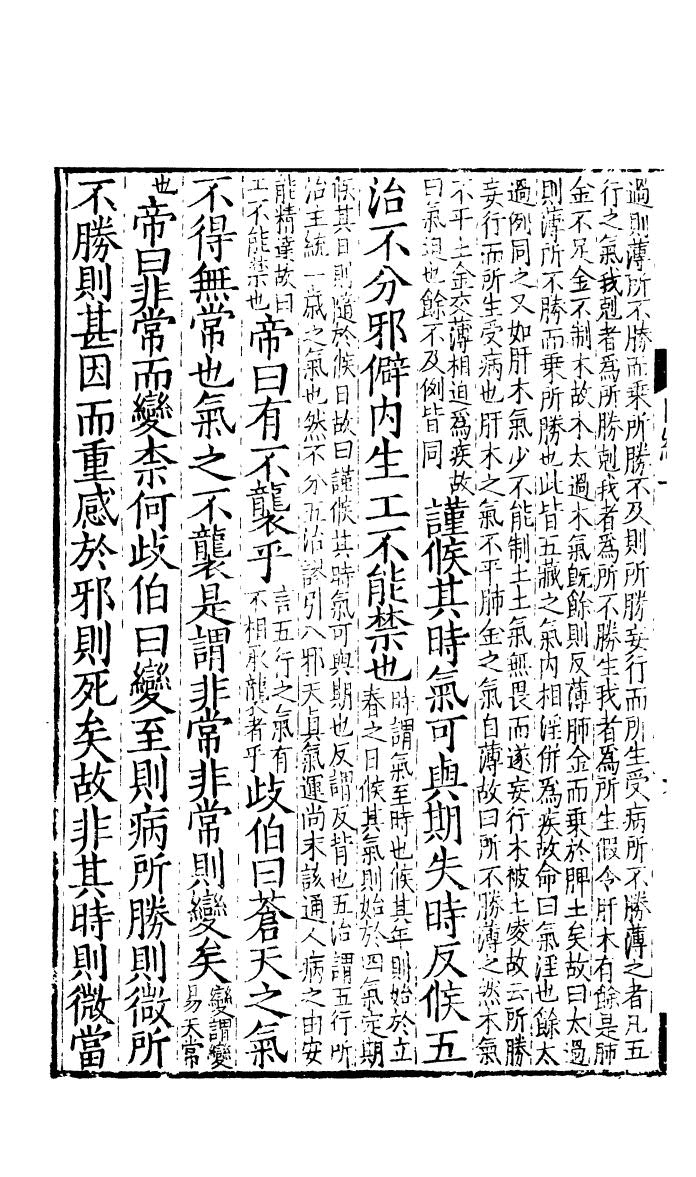 過則薄所不勝而乘所勝不及則所勝妄行而所生受病所不勝薄之者凡五
行之氣我剋者爲所勝剋我者爲所不勝生我者爲所生假令肝木有餘是肺
金不足金不制木故木太過木氣旣餘則反薄肺金而乘於脾土矣故曰太過
則薄所不勝而乘所勝也此皆五藏之氣內相淫併爲疾故命曰氣淫也餘太
過例同之又如肝木氣少不能制土土氣無畏而遂妄行木被土凌故云所勝
妄行而所生受病也肝木之氣不平肺金之氣自薄故曰所不勝薄之然木氣
不平土金交薄相迫爲疾故
曰氣迫也餘不及例皆同
謹候其時氣可與期失時反候五
治不分邪僻內生工不能禁也
時謂氣至時也候其年則始於立
春之日候其氣則始於四氣定期
候其日則隨於候日故曰謹候其時氣可與期也反謂反背也五治謂五行所
治主統一歲之氣也然不分五治謬引八邪天眞氣運尚未該通人病之由安
能精達故曰
工不能禁也
帝曰有不襲乎
言五行之氣有
不相承襲者乎
歧伯曰蒼天之氣
不得無常也氣之不襲是謂非常非常則變矣
變謂變
易天常
也
帝曰非常而變柰何歧伯曰變至則病所勝則微所
不勝則甚因而重感於邪則死矣故非其時則微當